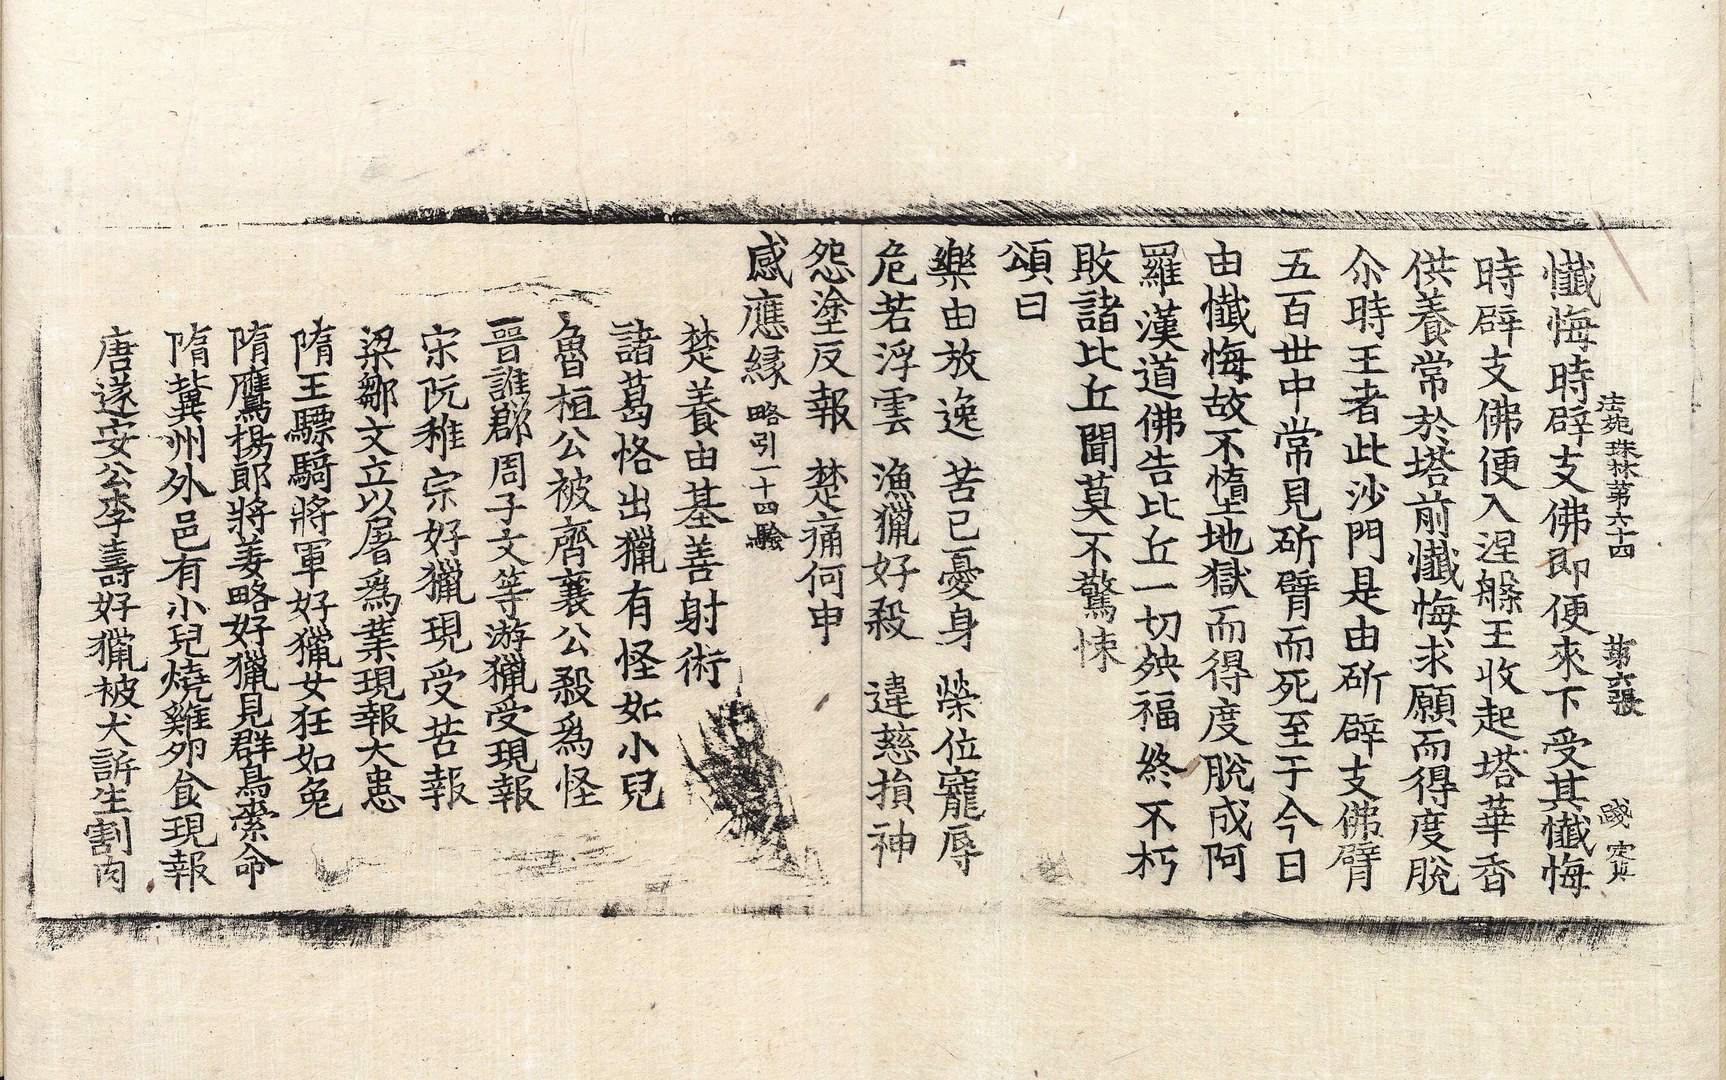 法苑珠林第六十四 第六張 定
懺悔時辟支佛即便來下受其懺悔
時辟支佛便入涅槃王收起塔華香
供養常於塔前懺悔求願而得度脫
尒時王者此沙門是由斫辟支佛臂
五百世中常見斫臂而死至于今日
由懺悔故不墮地獄而得度脫成阿
羅漢道佛告比丘一切殃福終不朽
敗諸比丘聞莫不驚悚
頌曰
樂由放逸 苦已憂身 榮位寵辱
危若浮雲 漁獵好殺 違慈損神
怨塗反報 楚痛何申
感應緣 略引一十四驗
楚養由基善射術
諸葛恪出獵有怪如小兒
魯桓公被齊襄公殺為怪
晉譙郡周子文等游獵受現報
宋阮稚宗好獵現受苦報
梁鄒文立以屠為業現報大患
隋王驃騎將軍好獵女狂如兔
隋鷹揚郎將姜略好獵見群鳥索命
隋冀州外邑有小兒燒雞卵食現報
唐遂安公李壽好獵被犬訴生割肉